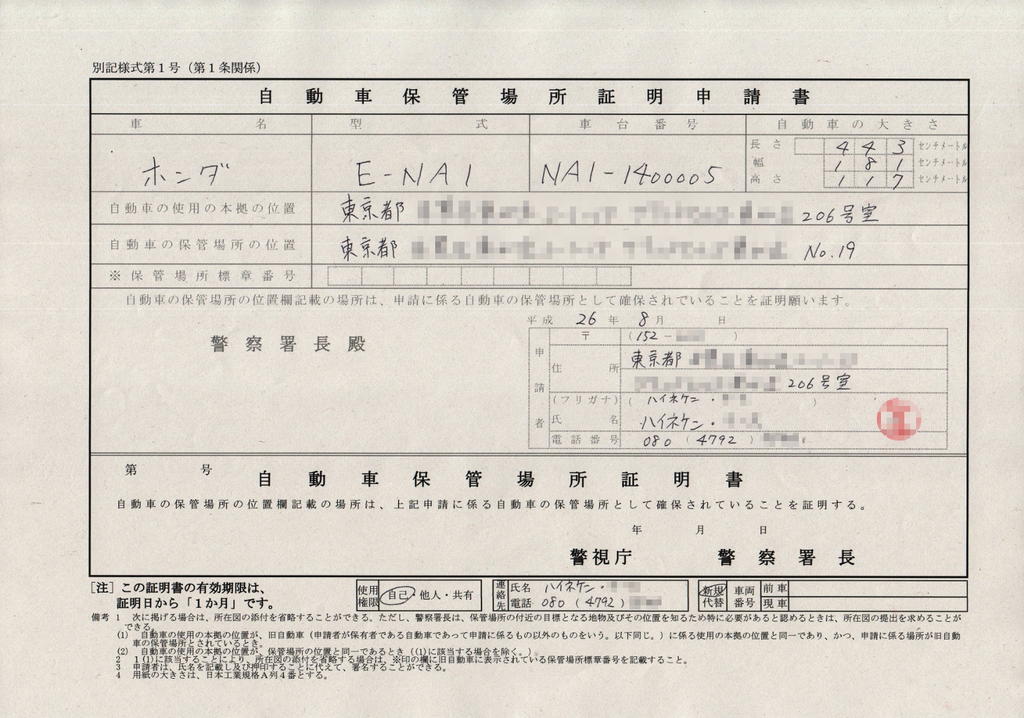 別記様式第1号（第1条関係）
自動車保管場所証明申請書
車名 型式 車台番号 自動車の大きさ
ホンダ E-NA1 NA1-1400005
長さ 443 センチメートル
幅 181 センチメートル
高さ 117 センチメートル
自動車の使用の本拠の位置 東京都 206号室
自動車の保管場所の位置 東京都 No.19
※保管場所標章番号
自動車の保管場所の位置欄記載の場所は、申請に係る自動車の保管場所として確保されていることを証明願います。
平成 26年 8月 日
警察署長殿
申請者
〒 (152- )
住所 東京都
206号室
(フリガナ) ( ハイネケン・ )
氏名 ハイネケン・
電話番号 080 ( 4792 )
第 号 自動車保管場所証明書
自動車の保管場所の位置欄記載の場所は、上記申請に係る自動車の保管場所として確保されていることを証明する。
年 月 日
警視庁 警察署長
［注］この証明書の有効期限は、
証明日から「1か月」です。
使用権限 自己・他人・共有
連絡先 氏名 ハイネケン・
電話 080 (4792)
新規 代替 車両番号 前車
現車
備考 1 次に掲げる場合は、所在図の添付を省略することができる。ただし、警察署長は、保管場所の付近の目標となる地物及びその位置を知るため特に必要があると認めるときは、所在図の提出を求めることが
できる。
(1) 自動車の使用の本拠の位置が、旧自動車（申請者が保有者である自動車であって申請に係るもの以外のものをいう。以下同じ。）に係る使用の本拠の位置と同一であり、かつ、申請に係る場所が旧自動
車の保管場所とされているとき。
(2) 自動車の使用の本拠の位置が、保管場所の位置と同一であるとき（(1)に該当する場合を除く。）
2 1(1)に該当することにより、所在図の添付を省略する場合は、※印の欄に旧自動車に表示されている保管場所標章番号を記載すること。
3 申請者は、氏名を記載し及び押印することに代えて、署名することができる。
4 用紙の大きさは、日本工業規格A列4番とする。